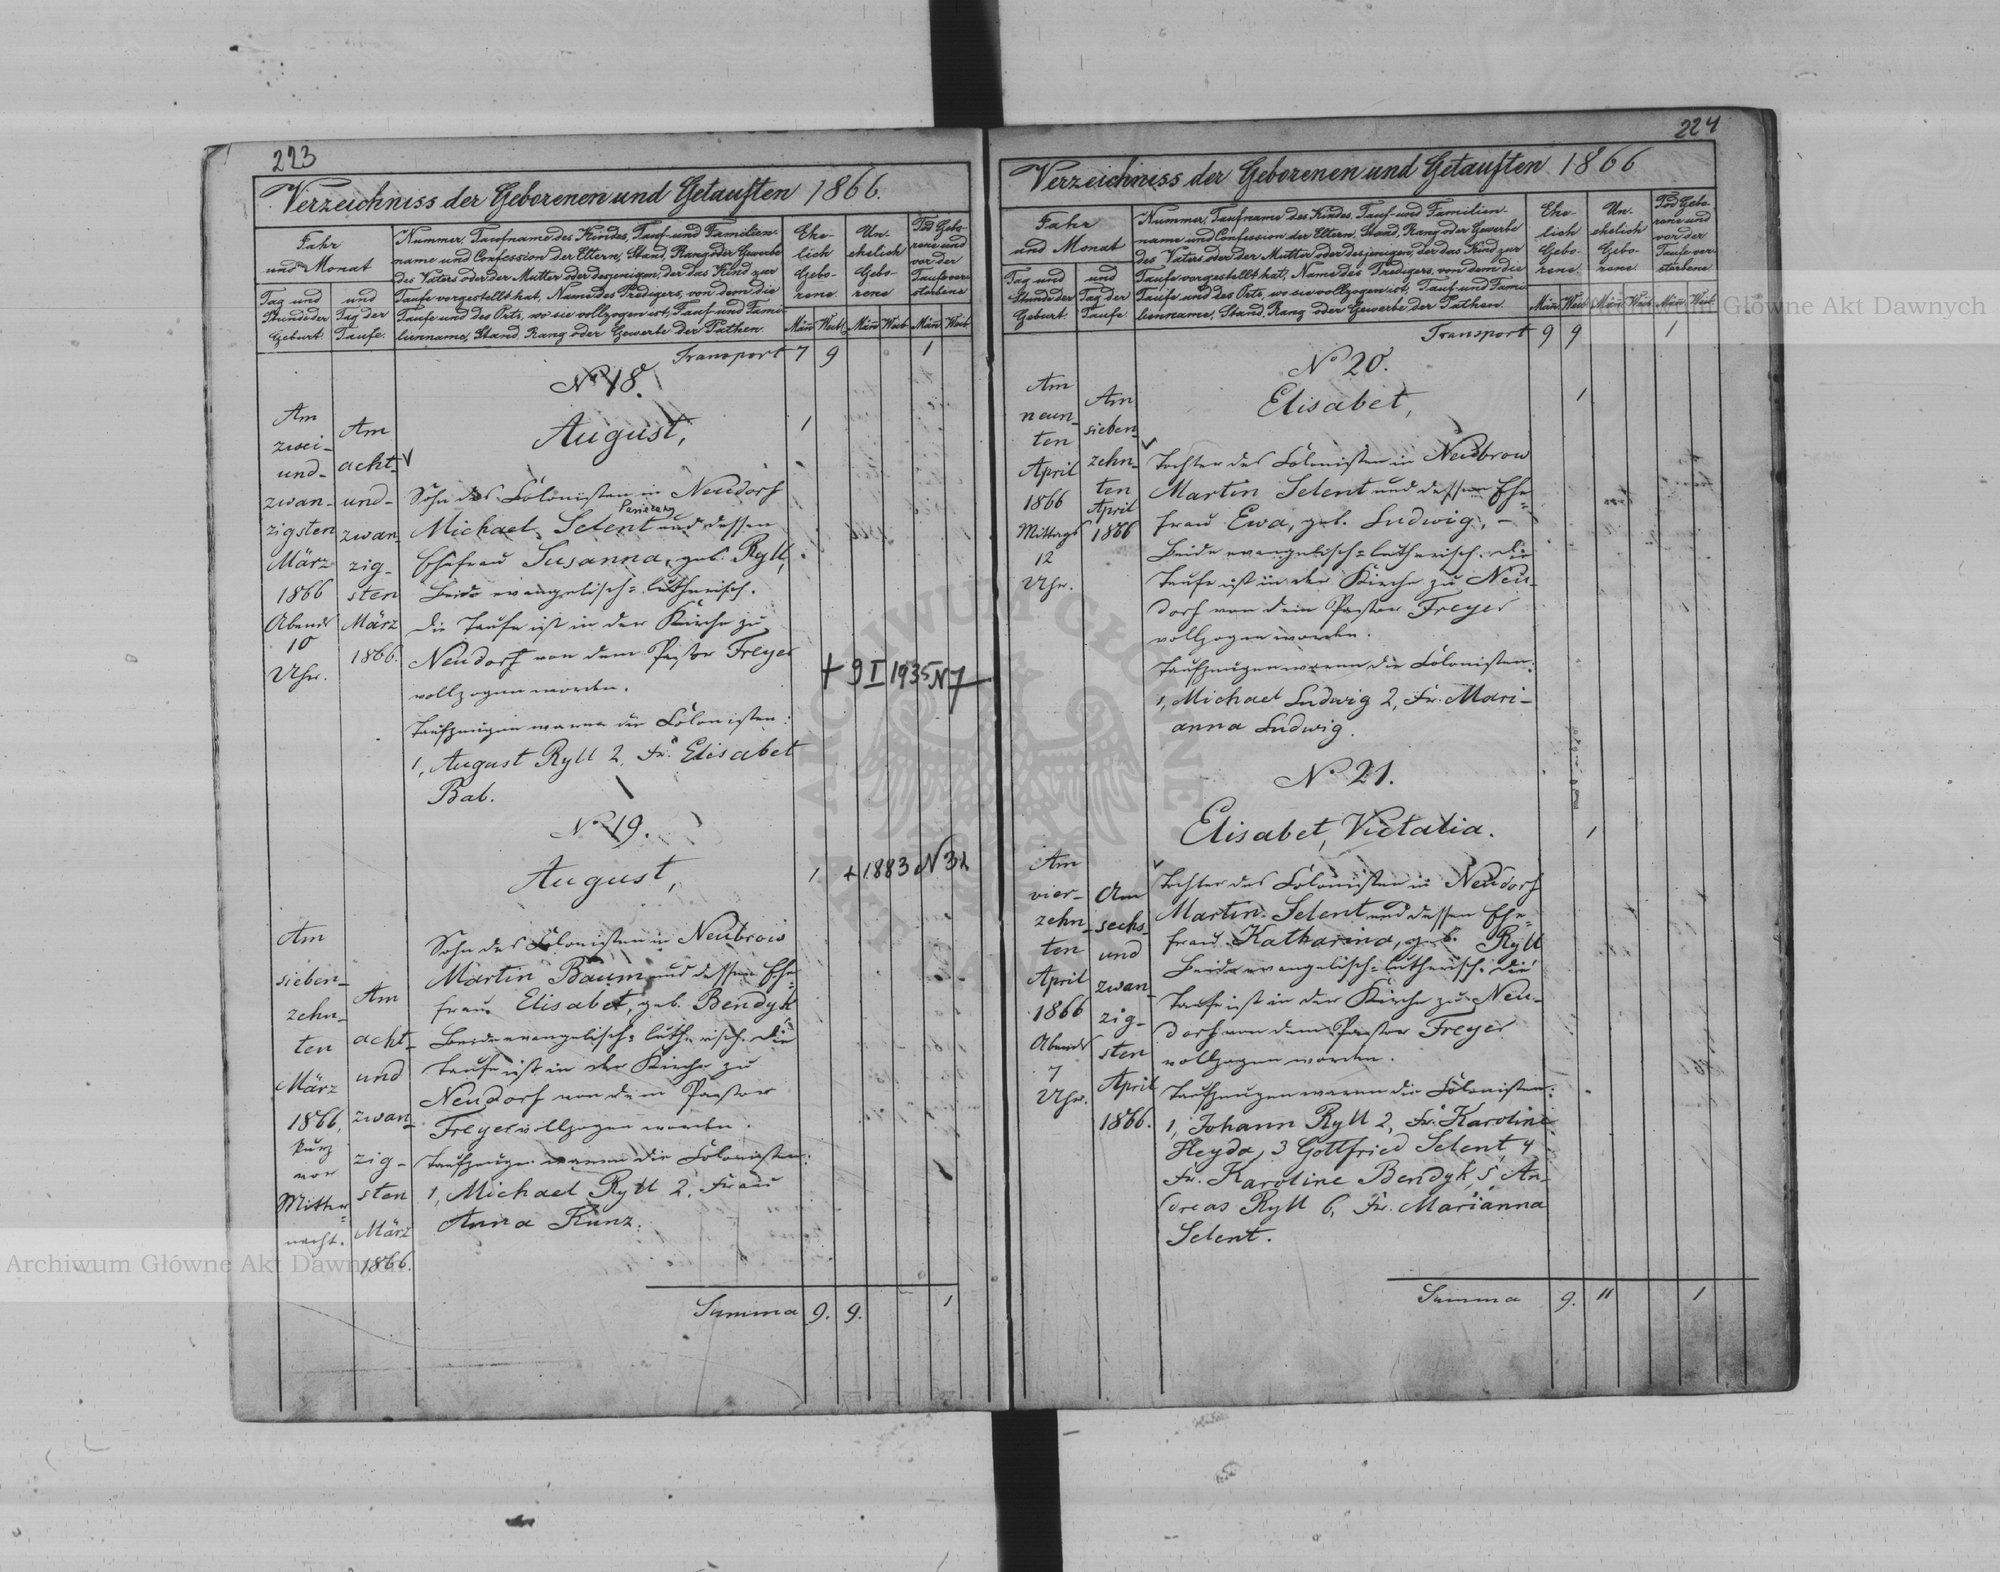 223
Verzeichniss der Geborenen und Getauften 1866.
Jahr
und Monat
Tag und
Stunde der
Geburt.
und
Tag der
Taufe.
Nummer, Taufname des Kindes, Tauf- und Familien-
name und Confession der Eltern, Stand, Rang oder Gewerbe
des Vaters oder der Mutter oder desjenigen, der das Kind zur
Taufe vorgestellt hat, Name des Predigers, von dem die
Taufe und des Orts, wo sie vollzogen ist, Tauf- und Fami-
lienname, Stand, Rang oder Gewerbe der Pathen.
Ehe-
lich
Gebo-
rene
Un-
ehelich
Gebo-
rene
Tod Gebo-
rene und
vor der
Taufe ver-
storbene
Män Weib Män Weib Män Weib
Transport 7 9 1
No 18.
August, 1
Am
zwei-
und-
zwan-
zigsten
März
1866
Abends
10
Uhr.
Am
acht-
und-
zwan-
zig-
sten
März
1866.
Sohn des Colonisten in Neudorf
Michael Selent und dessen
Ehefrau Susanna, geb. Ryll,
Beide evangelisch=lutherisch.
Die Taufe ist in der Kirche zu
Neudorf von dem Pastor Freyer
vollzogen worden.
Taufzeugen waren die Colonisten:
1, August Ryll 2, Fr. Elisabet
Bab.
+ 9 I 1935 N 7
No 19.
August, 1 + 1883 N 31
Am
sieben-
zehn-
ten
März
1866,
kurz
vor
Mitter=
nacht.
Am
acht-
und
zwan-
zig-
sten
März
1866.
Sohn des Colonisten in Neubrow
Martin Baum und dessen Ehe=
frau Elisabet, geb. Bendyk
Beide evangelisch=lutherisch. Die
Taufe ist in der Kirche zu
Neudorf von dem Pastor
Freyer vollzogen worden.
Taufzeugen waren die Colonisten:
1, Michael Ryll 2, Frau
Anna Kunz.
Summa 9. 9. 1
224
Verzeichniss der Geborenen und Getauften 1866
Jahr
und Monat
Tag und
Stunde der
Geburt.
und
Tag der
Taufe.
Nummer, Taufname des Kindes, Tauf- und Familien-
name und Confession der Eltern, Stand, Rang oder Gewerbe
des Vaters oder der Mutter oder desjenigen, der das Kind zur
Taufe vorgestellt hat, Name des Predigers, von dem die
Taufe und des Orts, wo sie vollzogen ist, Tauf- und Fami-
lienname, Stand, Rang oder Gewerbe der Pathen.
Ehe-
lich
Gebo-
rene
Un-
ehelich
Gebo-
rene
Tod Gebo-
rene und
vor der
Taufe ver-
storbene
Män Weib Män Weib Män Weib
Transport 9 9 1
No 20.
Elisabet, 1
Am
neun-
ten
April
1866
Mittags
12
Uhr.
Am
sieben-
zehn-
ten
April
1866
Tochter des Colonisten in Neubrow
Martin Selent und dessen Ehe=
frau Ewa, geb. Ludwig, -
Beide evangelisch=lutherisch. Die
Taufe ist in der Kirche zu Neu-
dorf von dem Pastor Freyer
vollzogen worden.
Taufzeugen waren die Colonisten:
1, Michael Ludwig 2, Fr. Mari-
anna Ludwig.
No 21.
Elisabet, Victalia. 1
Am
vier-
zehn-
ten
April
1866
Abends
7
Uhr.
Am
sechs-
und
zwan-
zig-
sten
April
1866.
Tochter des Colonisten in Neudorf
Martin Selent und dessen Ehe=
frau Katharina, geb. Ryll
Beide evangelisch=lutherisch. Die
Taufe ist in der Kirche zu Neu-
dorf von dem Pastor Freyer
vollzogen worden.
Taufzeugen waren die Colonisten:
1, Johann Ryll 2, Fr. Karoline
Heyda, 3 Gottfried Selent, 4
Fr. Karoline Bendyk, 5, An-
dreas Ryll 6, Fr. Marianna
Selent.
Summa 9. 11 1
Archiwum Główne Akt Dawnych
Główne Akt Dawnych